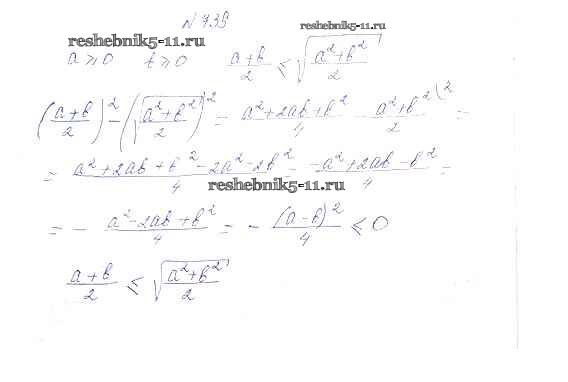 N 739
reshebnik5-11.ru reshebnik5-11.ru
a ⩾ 0 b ⩾ 0 (a+b)/2 ⩽ √((a²+b²)/2)
((a+b)/2)² − (√((a²+b²)/2))² = (a²+2ab+b²)/4 − (a²+b²)/2 ⁽² =
= (a²+2ab+b²−2a²−2b²)/4 = (−a²+2ab−b²)/4 =
reshebnik5-11.ru
= − (a²−2ab+b²)/4 = − (a−b)²/4 ⩽ 0
(a+b)/2 ⩽ √((a²+b²)/2)